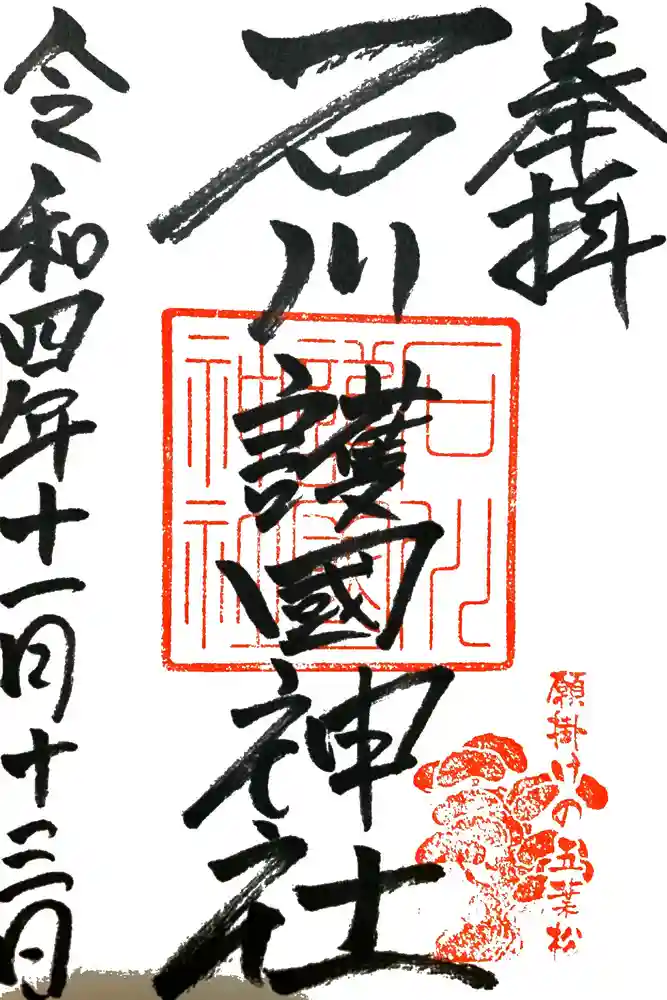 奉拝
石川護國神社
石川護國神社
願掛けの五葉松
令和四年十一月十三日